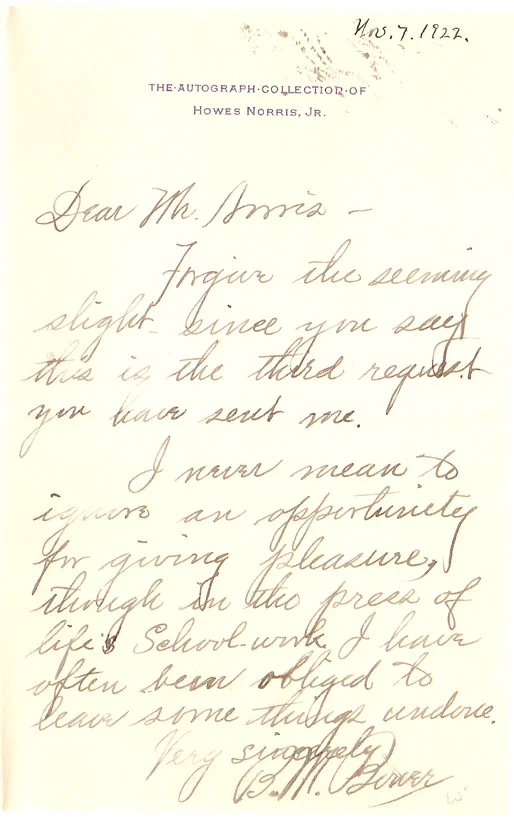 Nov. 7. 1922.
THE·AUTOGRAPH·COLLECTION·OF
HOWES NORRIS, JR.
Dear Mr. Norris –
Forgive the seeming
slight - since you say
this is the third request
you have sent me.
I never mean to
ignore an opportunity
for giving pleasure,
though in the press of
life's School-work I have
often been obliged to
leave some things undone.
Very sincerely
B. M. Bower